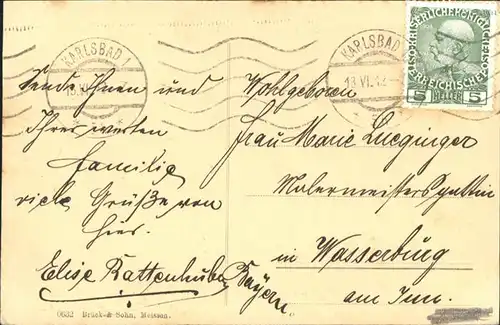 KARLSBAD 1
Sende Ihnen und
Ihrer werten
Familie
viele Grüße von
hier.
Elise Rattenhuber
0632 Brück & Sohn, Meissen.
KARLSBAD
13 VI
KAISERLICHEKÖNIGLICHE
ÖSTERREICHISCHE POST
5 HELLER 5
Wohlgeboren
Frau Marie
Malermeistersgattin
in Wasserburg
am Inn.
Bayern.